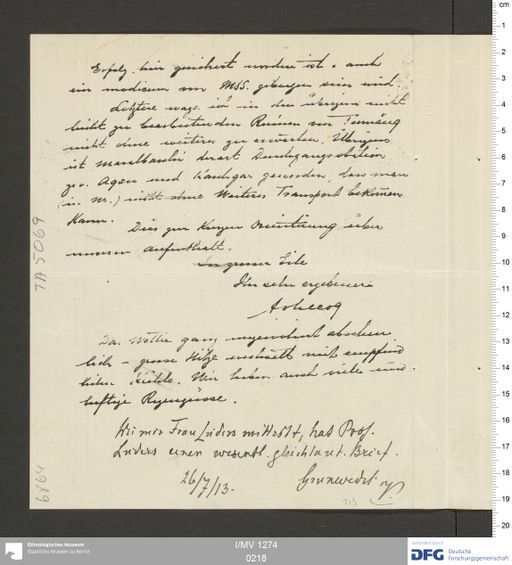 Erfolg hin gesichert worden ist. auch
ein modicum von MSS. geborgen sein wird.
Letztere wage ich in den übrigens nicht
leicht zu bearbeitenden Ruinen von Tumšuq
nicht ohne weiteres zu erwarten. Übrigens
ist Maralbashi derart Durchgangsstation
zw. Aqsu und Kashgar geworden, dass man
(in M.) nicht ohne Weiteres Transport bekommen
kann.
Dies zur kurzen Orientierung über
unseren Aufenthalt.
In grosser Eile
Ihr sehr ergebener
Das Wetter ganz ungewöhnt abscheu
lich - grosse Hitze wechselt mit empfind
licher Kühle. Wir haben auch viele und
heftige Regengüsse.
Wie mir Frau Lüders mitteilt, hat Prof.
Lüders einen wesentl. gleichlaut. Brief.
26/7/13. Grünwedel
213
7A 5069
6864
Ethnologisches Museum
Staatliche Museen zu Berlin
I/MV 1274
0218
Gefördert durch
DFG Deutsche
Forschungsgemeinschaft
cm
1
2
3
4
5
6
7
8
9
10
11
12
13
14
15
16
17
18
19
20